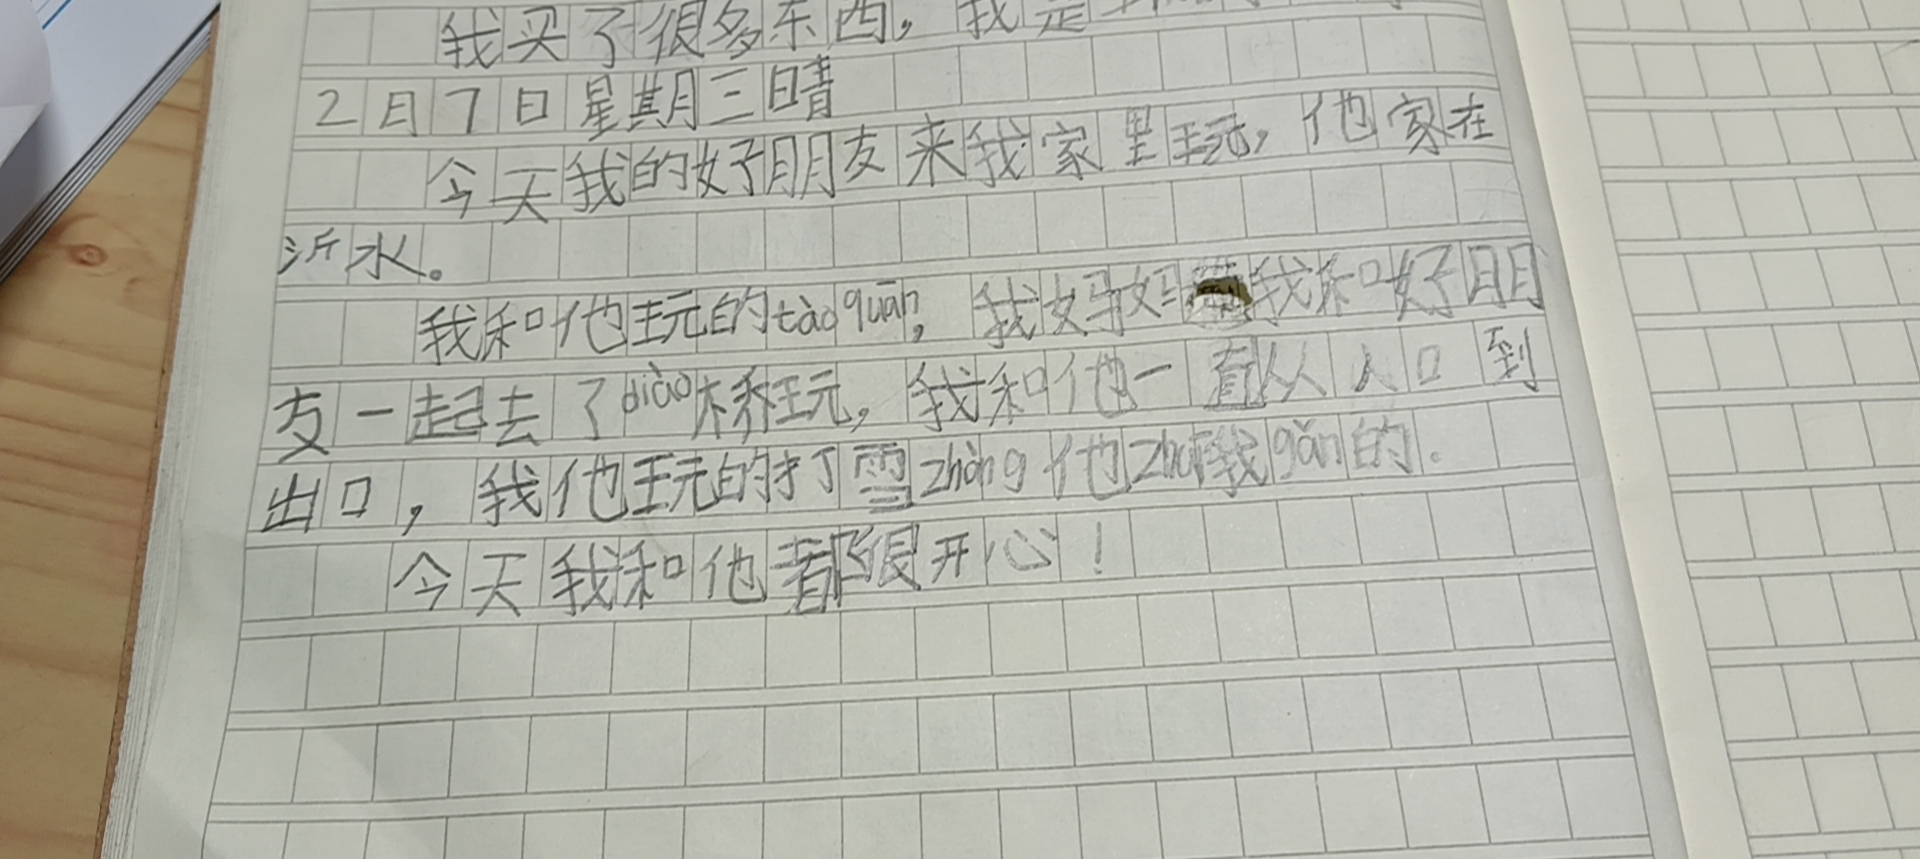 我买了很多东西，我是
2月7日星期三晴
今天我的好朋友来我家里玩，他家在
沂水。
我和他玩的tào quān，我妈妈带我和好朋
友一起去了diào桥玩，我和他一直从入口到
出口，我他玩的打雪zhàng他zhuī我gǎn的.
今天我和他都很开心！